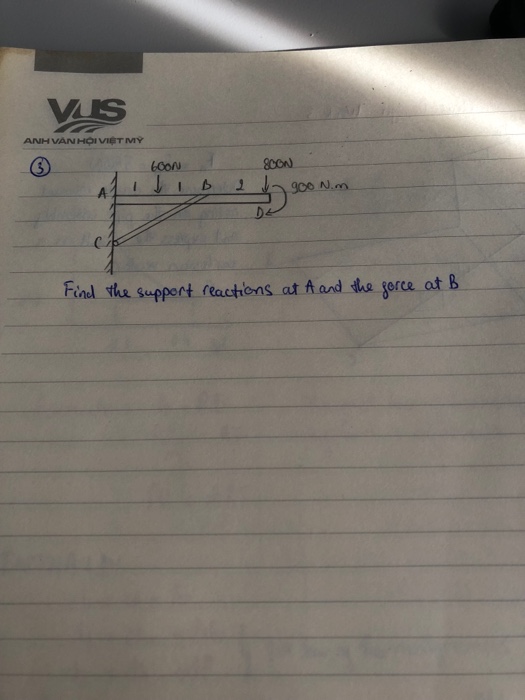 VUS
ANH VĂN HỘI VIỆT MỸ
3
600N 800N
A 1 1 B 2 900 N.m
D
C
Find the support reactions at A and the force at B